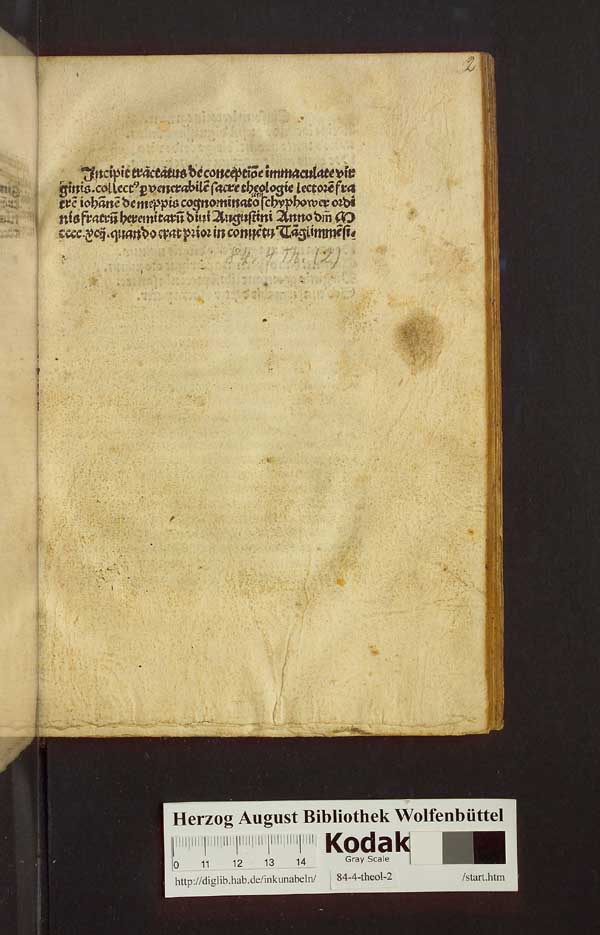 2
Incipit tractatus de conceptiōe immaculate vir
ginis. collectꝰ ꝑ venerabilē sacre theologie lectorē fra
trē iohānē de meppis cognominatū schyphower ordi
nis fratrū heremitarū diui Augustini Anno dn̄i M
cccc. xcij. quando erat prior in conuētu Tāglimmēsi.
84. 4 Th. (2)
Herzog August Bibliothek Wolfenbüttel
0 11 12 13 14
Kodak
Gray Scale
http://diglib.hab.de/inkunabeln/ 84-4-theol-2 /start.htm